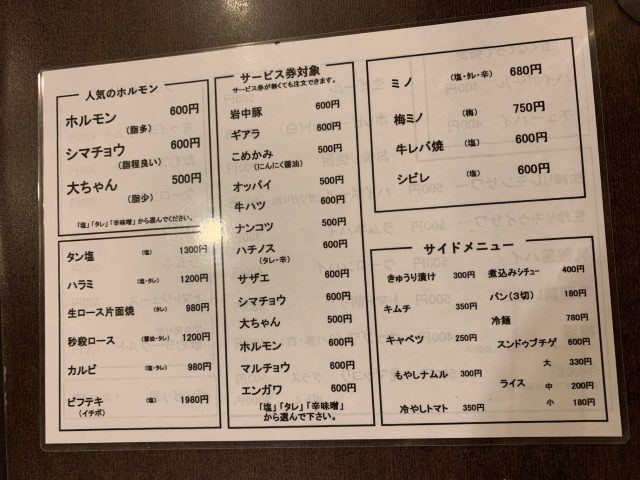 人気のホルモン
ホルモン 600円
(脂多)
シマチョウ 600円
(脂程良い)
大ちゃん 500円
(脂少)
「塩」「タレ」「辛味噌」から選んでください。
タン塩 (塩) 1300円
ハラミ (塩・タレ) 1200円
生ロース片面焼 (タレ) 980円
秒殺ロース (醤油・タレ) 1200円
カルビ (塩・タレ) 980円
ビフテキ (塩) 1980円
(イチボ)
サービス券対象
サービス券が無くても注文できます。
岩中豚 600円
ギアラ 600円
こめかみ 500円
(にんにく醤油)
オッパイ 500円
牛ハツ 500円
ナンコツ 500円
ハチノス 600円
(タレ・辛)
サザエ 600円
シマチョウ 600円
大ちゃん 500円
ホルモン 600円
マルチョウ 600円
エンガワ 600円
「塩」「タレ」「辛味噌」
から選んで下さい。
ミノ (塩・タレ・辛) 680円
梅ミノ (梅) 750円
牛レバ焼 (塩) 600円
シビレ (塩) 600円
サイドメニュー
きゅうり漬け 300円
キムチ 350円
キャベツ 250円
もやしナムル 300円
冷やしトマト 350円
煮込みシチュー 400円
パン(3切) 180円
冷麺 780円
スンドゥブチゲ 600円
大 330円
ライス 中 200円
小 180円